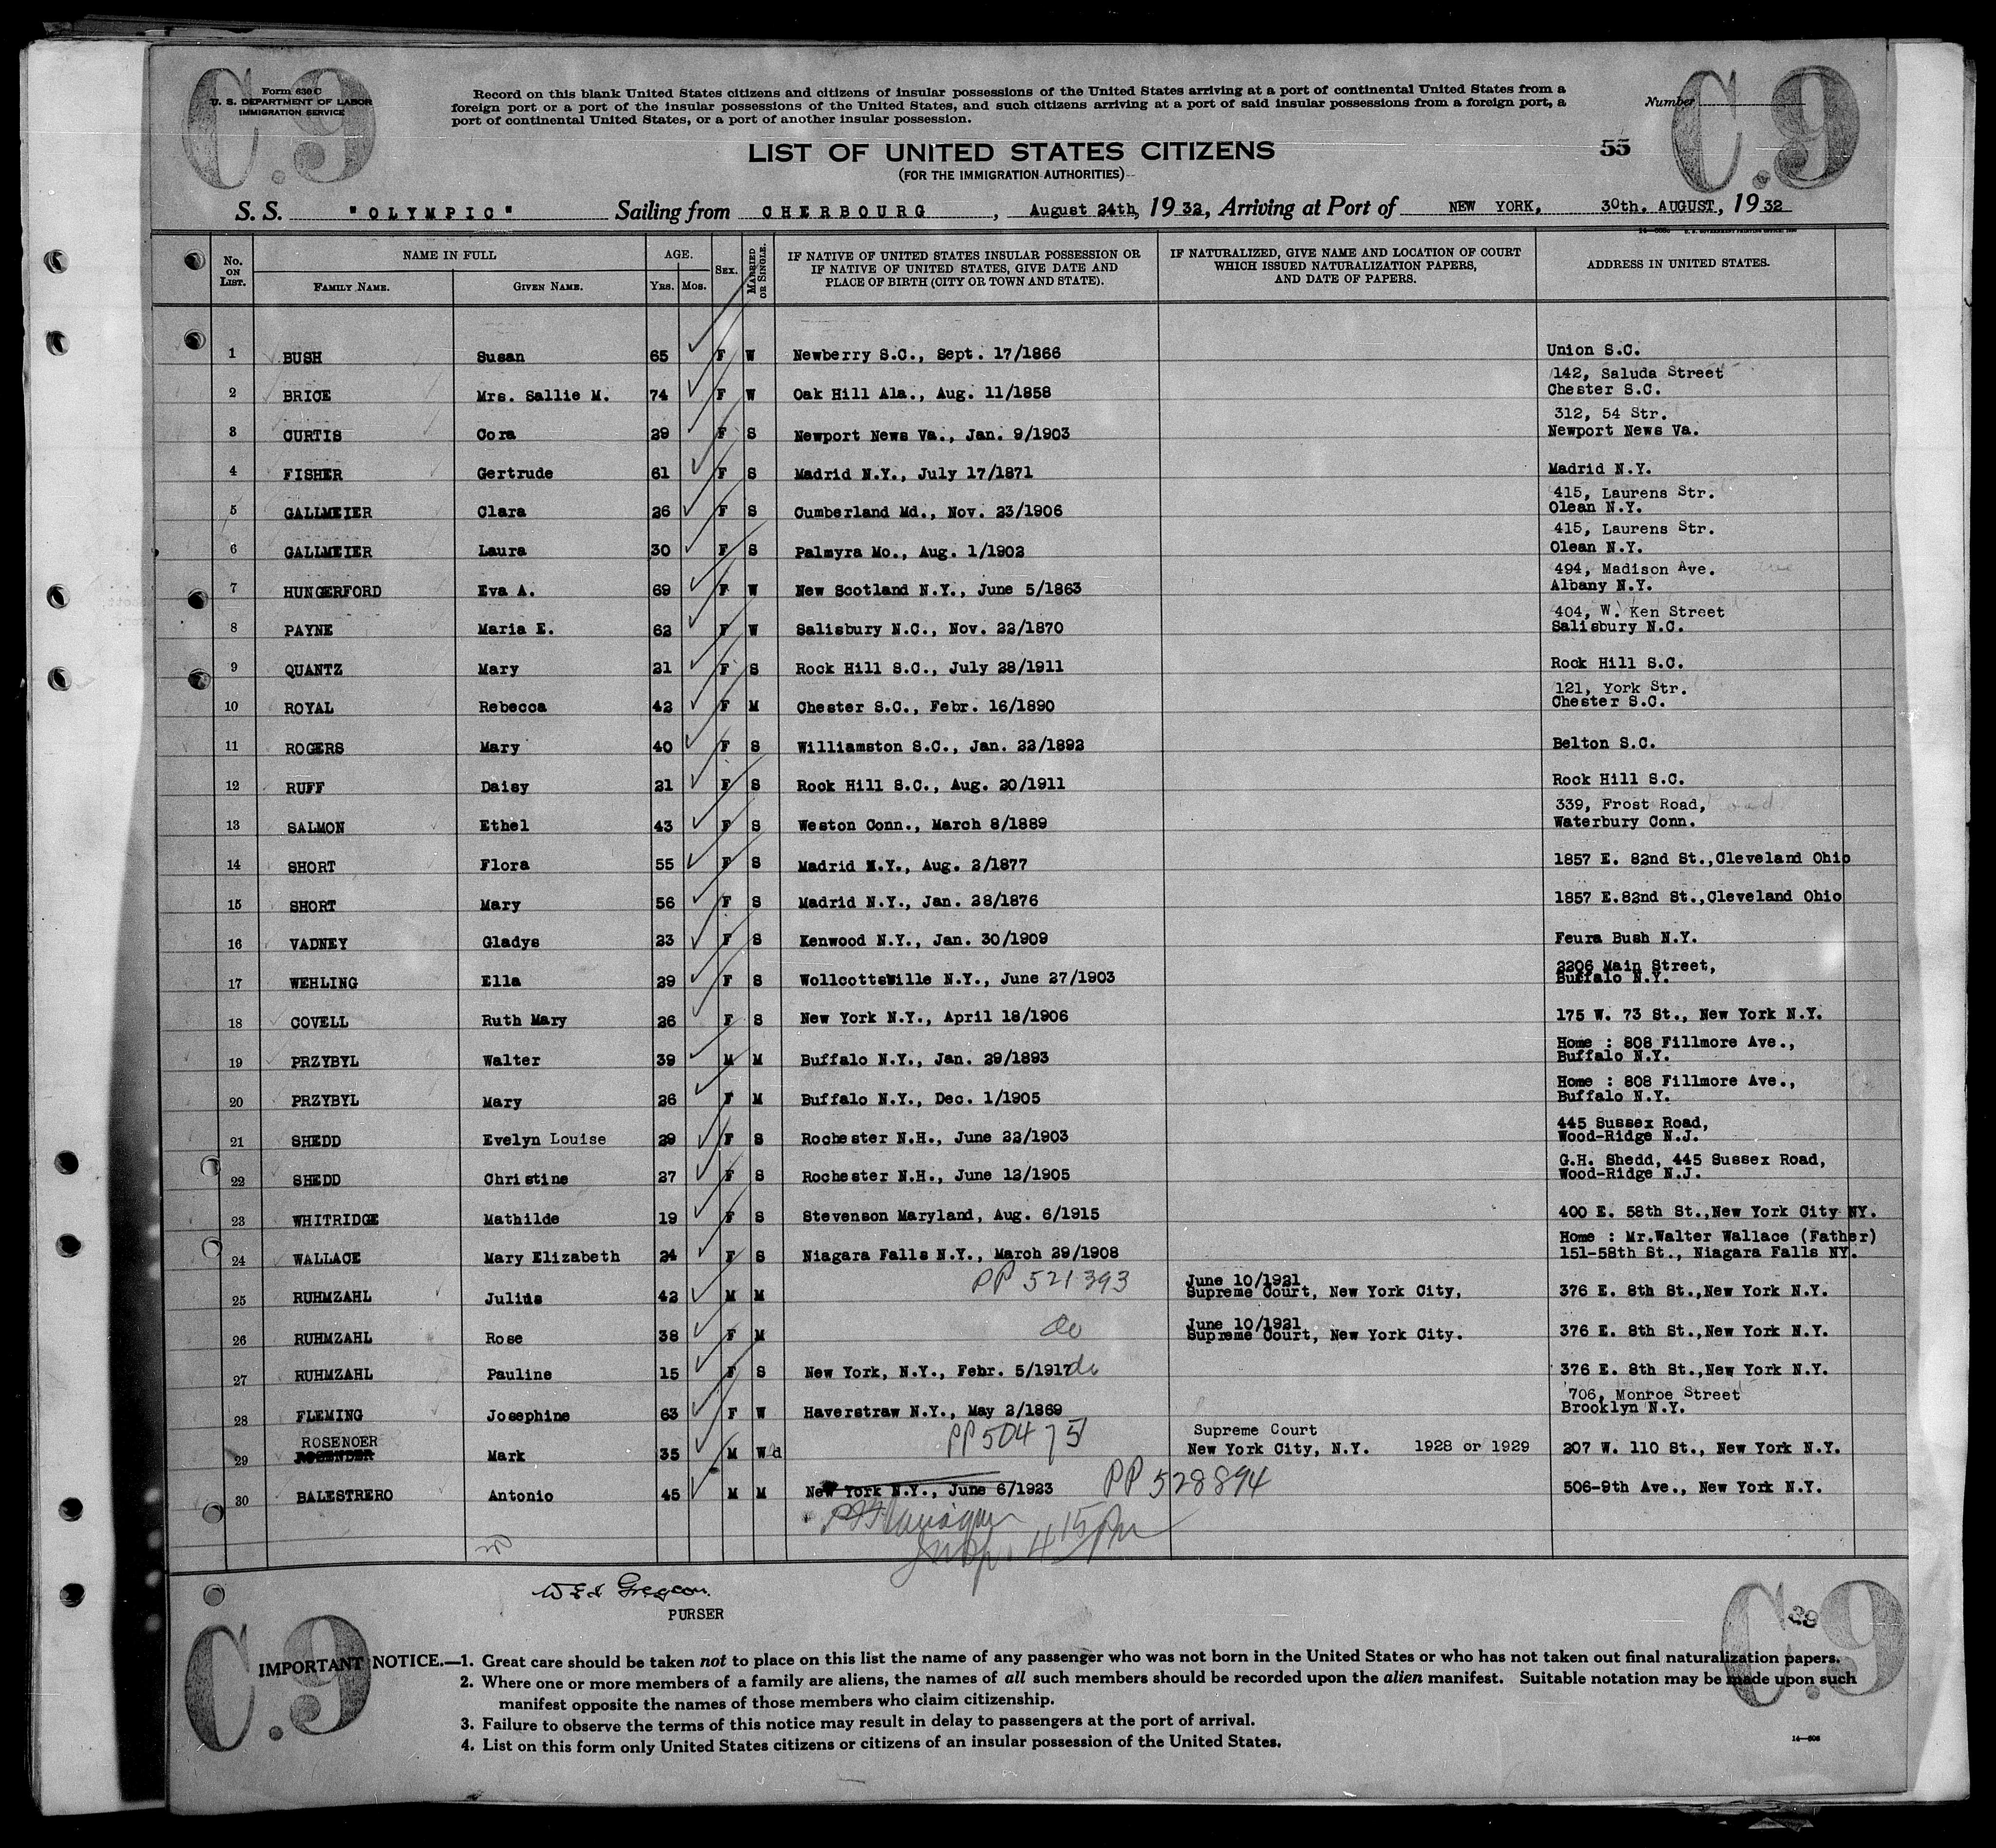 C.9
Form 630 C
U. S. DEPARTMENT OF LABOR
IMMIGRATION SERVICE
Record on this blank United States citizens and citizens of insular possessions of the United States arriving at a port of continental United States from a
foreign port or a port of the insular possessions of the United States, and such citizens arriving at a port of said insular possessions from a foreign port, a
port of continental United States, or a port of another insular possession.
Number
C.9
LIST OF UNITED STATES CITIZENS
55
(FOR THE IMMIGRATION AUTHORITIES)
S. S. "OLYMPIC" Sailing from CHERBOURG, August 24th, 1932, Arriving at Port of NEW YORK, 30th. AUGUST, 1932
No. ON LIST. NAME IN FULL FAMILY NAME. GIVEN NAME. AGE. YRS. MOS. SEX. MARRIED OR SINGLE. IF NATIVE OF UNITED STATES INSULAR POSSESSION OR IF NATIVE OF UNITED STATES, GIVE DATE AND PLACE OF BIRTH (CITY OR TOWN AND STATE). IF NATURALIZED, GIVE NAME AND LOCATION OF COURT WHICH ISSUED NATURALIZATION PAPERS, AND DATE OF PAPERS. ADDRESS IN UNITED STATES.
1 BUSH Susan 65 F W Newberry S.C., Sept. 17/1866 Union S.C.
142, Saluda Street
2 BRICE Mrs. Sallie M. 74 F W Oak Hill Ala., Aug. 11/1858 Chester S.C.
312, 54 Str.
3 CURTIS Cora 29 F S Newport News Va., Jan. 9/1903 Newport News Va.
4 FISHER Gertrude 61 F S Madrid N.Y., July 17/1871 Madrid N.Y.
415, Laurens Str.
5 GALLMEIER Clara 26 F S Cumberland Md., Nov. 23/1906 Olean N.Y.
415, Laurens Str.
6 GALLMEIER Laura 30 F S Palmyra Mo., Aug. 1/1902 Olean N.Y.
494, Madison Ave.
7 HUNGERFORD Eva A. 69 F W New Scotland N.Y., June 5/1863 Albany N.Y.
404, W. Ken Street
8 PAYNE Maria E. 62 F W Salisbury N.C., Nov. 22/1870 Salisbury N.C.
9 QUANTZ Mary 21 F S Rock Hill S.C., July 28/1911 Rock Hill S.C.
121, York Str.
10 ROYAL Rebecca 42 F M Chester S.C., Febr. 16/1890 Chester S.C.
11 ROGERS Mary 40 F S Williamston S.C., Jan. 22/1892 Belton S.C.
12 RUFF Daisy 21 F S Rock Hill S.C., Aug. 20/1911 Rock Hill S.C.
339, Frost Road,
13 SALMON Ethel 43 F S Weston Conn., March 8/1889 Waterbury Conn.
14 SHORT Flora 55 F S Madrid N.Y., Aug. 2/1877 1857 E. 82nd St.,Cleveland Ohio
15 SHORT Mary 56 F S Madrid N.Y., Jan. 28/1876 1857 E.82nd St.,Cleveland Ohio
16 VADNEY Gladys 23 F S Kenwood N.Y., Jan. 30/1909 Feura Bush N.Y.
2206 Main Street,
17 WEHLING Ella 29 F S Wollcottsville N.Y., June 27/1903 Buffalo N.Y.
18 COVELL Ruth Mary 26 F S New York N.Y., April 18/1906 175 W. 73 St., New York N.Y.
Home : 808 Fillmore Ave.,
19 PRZYBYL Walter 39 M M Buffalo N.Y., Jan. 29/1893 Buffalo N.Y.
Home : 808 Fillmore Ave.,
20 PRZYBYL Mary 26 F M Buffalo N.Y., Dec. 1/1905 Buffalo N.Y.
445 Sussex Road,
21 SHEDD Evelyn Louise 29 F S Rochester N.H., June 22/1903 Wood-Ridge N.J.
G.H. Shedd, 445 Sussex Road,
22 SHEDD Christine 27 F S Rochester N.H., June 12/1905 Wood-Ridge N.J.
23 WHITRIDGE Mathilde 19 F S Stevenson Maryland, Aug. 6/1915 400 E. 58th St.,New York City NY.
Home : Mr.Walter Wallace (Father)
24 WALLACE Mary Elizabeth 24 F S Niagara Falls N.Y., March 29/1908 151-58th St., Niagara Falls NY.
PP 521393 June 10/1921
25 RUHMZAHL Julius 42 M M Supreme Court, New York City, 376 E. 8th St.,New York N.Y.
do June 10/1921
26 RUHMZAHL Rose 38 F M Supreme Court, New York City. 376 E. 8th St.,New York N.Y.
27 RUHMZAHL Pauline 15 F S New York, N.Y., Febr. 5/1917 do 376 E. 8th St.,New York N.Y.
706, Monroe Street
28 FLEMING Josephine 63 F W Haverstraw N.Y., May 2/1869 Brooklyn N.Y.
ROSENOER PP 50475 Supreme Court
29 Mark 35 M Wd New York City, N.Y. 1928 or 1929 207 W. 110 St., New York N.Y.
30 BALESTRERO Antonio 45 M M New York N.Y., June 6/1923 PP 528894 506-9th Ave., New York N.Y.
Insp. 4 15 PM
PURSER
C.9
29
C.9
IMPORTANT NOTICE.—1. Great care should be taken not to place on this list the name of any passenger who was not born in the United States or who has not taken out final naturalization papers.
2. Where one or more members of a family are aliens, the names of all such members should be recorded upon the alien manifest. Suitable notation may be made upon such
manifest opposite the names of those members who claim citizenship.
3. Failure to observe the terms of this notice may result in delay to passengers at the port of arrival.
4. List on this form only United States citizens or citizens of an insular possession of the United States.